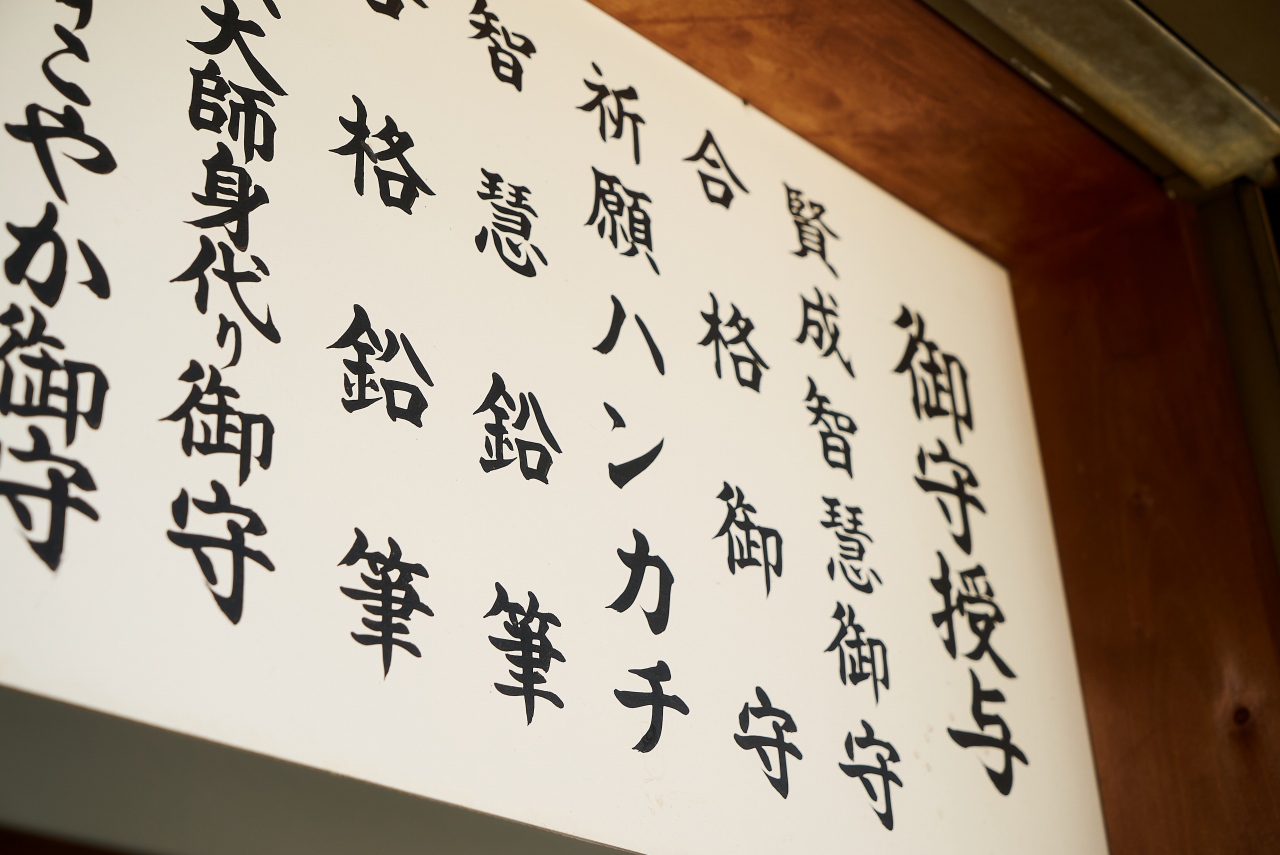 御守授与
賢成智慧御守
合格御守
祈願ハンカチ
智慧鉛筆
合格鉛筆
大師身代り御守
すこやか御守